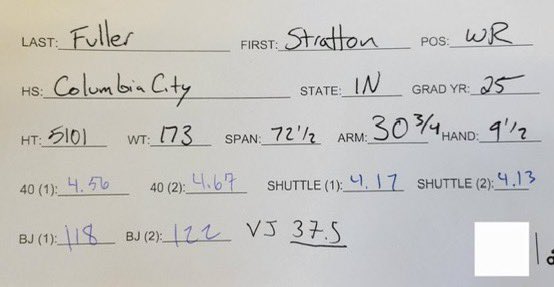 LAST: Fuller FIRST: Stratton POS: WR
HS: Columbia City STATE: IN GRAD YR: 25
HT: 5101 WT: 173 SPAN: 72 1/2 ARM: 30 3/4 HAND: 9 1/2
40 (1): 4.56 40 (2): 4.67 SHUTTLE (1): 4.17 SHUTTLE (2): 4.13
BJ (1): 118 BJ (2): 122 VJ 37.5